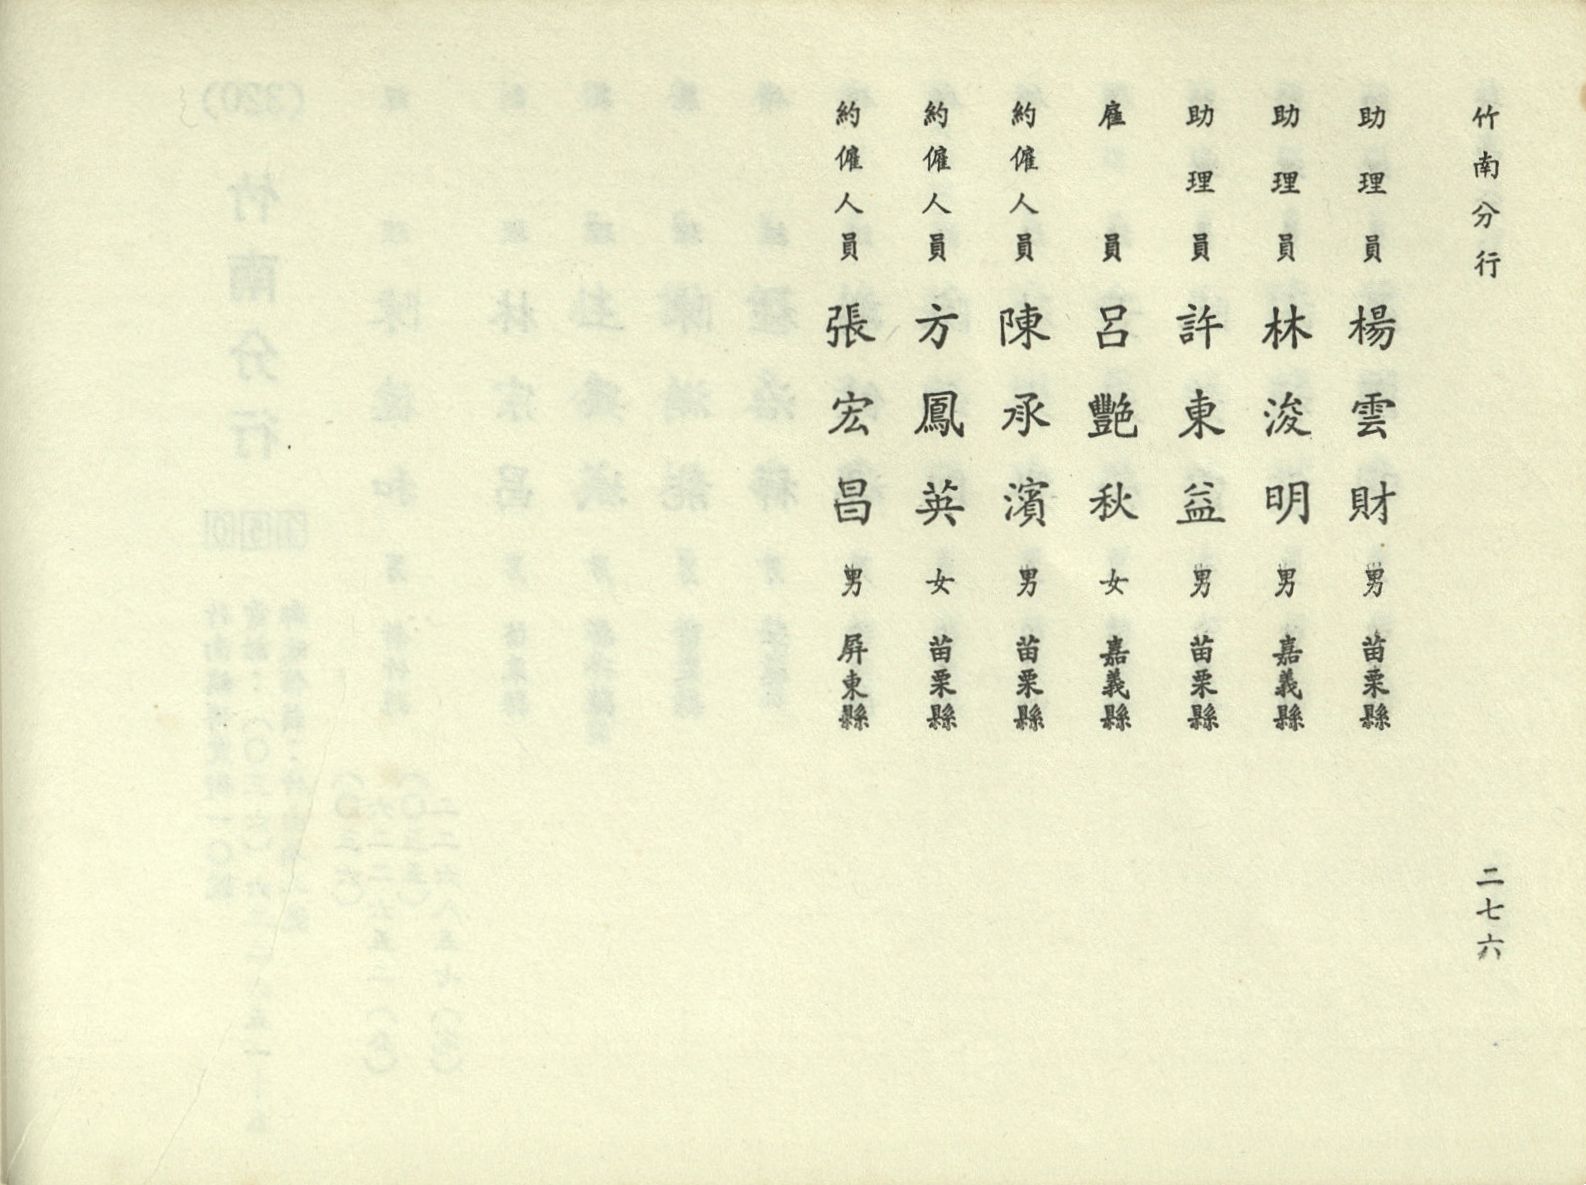 竹南分行
助理員 楊雲財 男 苗栗縣
助理員 林浚明 男 嘉義縣
助理員 許東益 男 苗栗縣
雇員 呂艷秋 女 嘉義縣
約僱人員 陳承濱 男 苗栗縣
約僱人員 方鳳英 女 苗栗縣
約僱人員 張宏昌 男 屏東縣
二七六